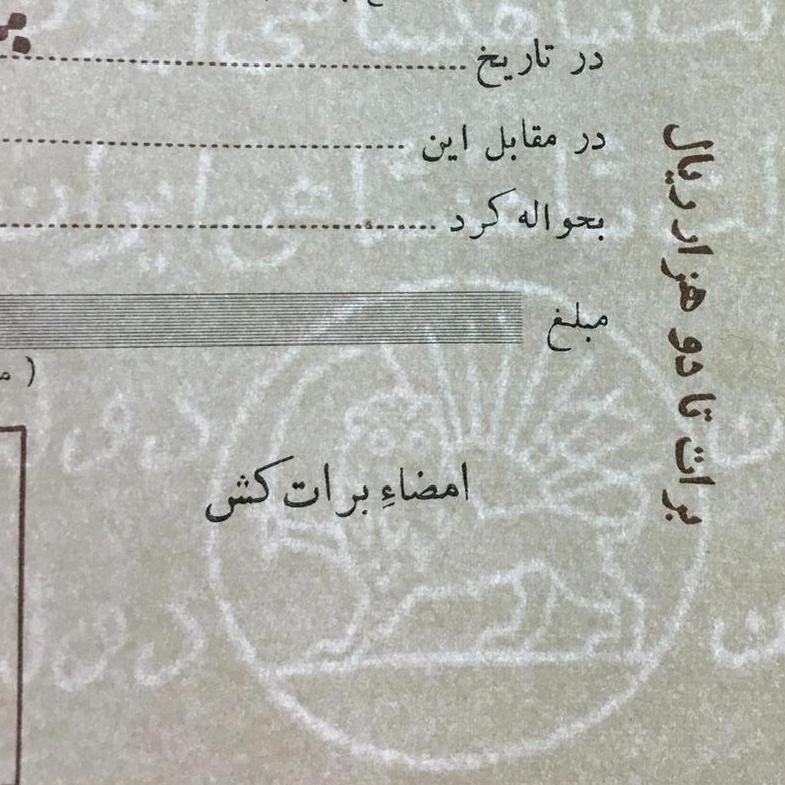 در تاریخ
در مقابل این
بحواله کرد
مبلغ
امضاءِ برات کش
برات تا دو هزار ریال